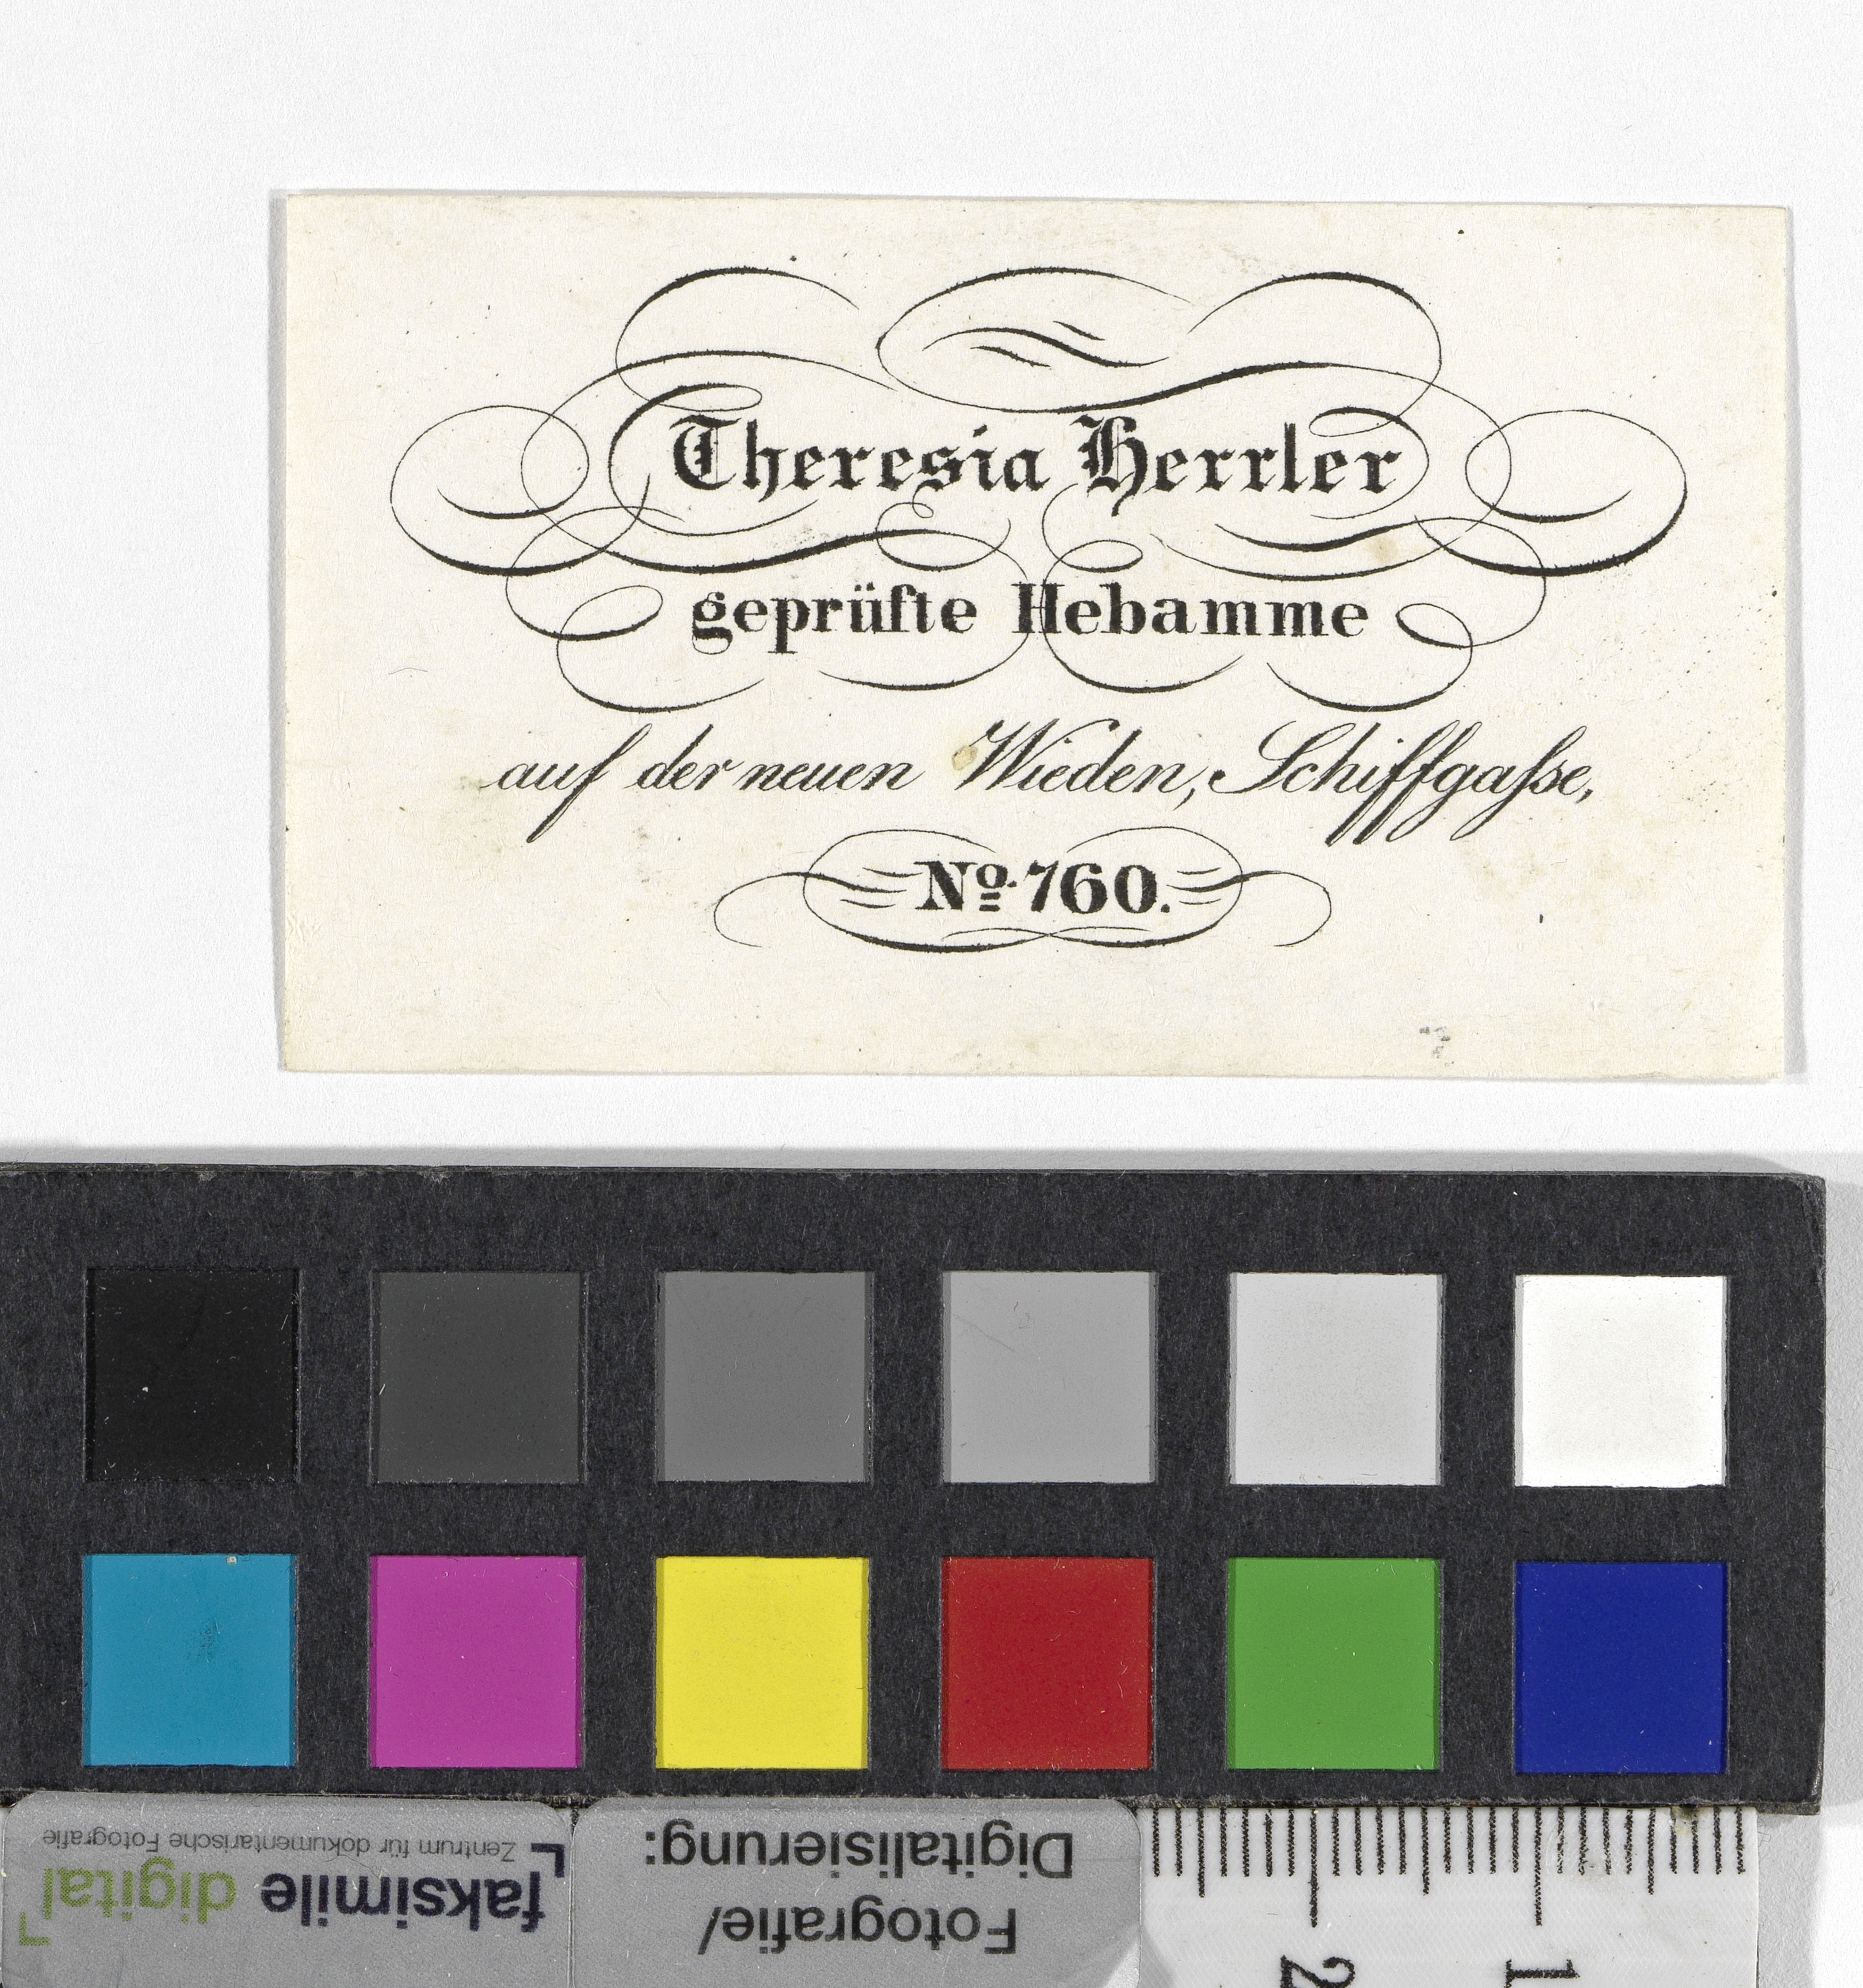 Theresia Herrler
geprüfte Hebamme
auf der neuen Wieden, Schiffgaſse,
Nº. 760.
Zentrum für dokumentarische Fotografie
faksimile digital
Fotografie/
Digitalisierung:
2 1